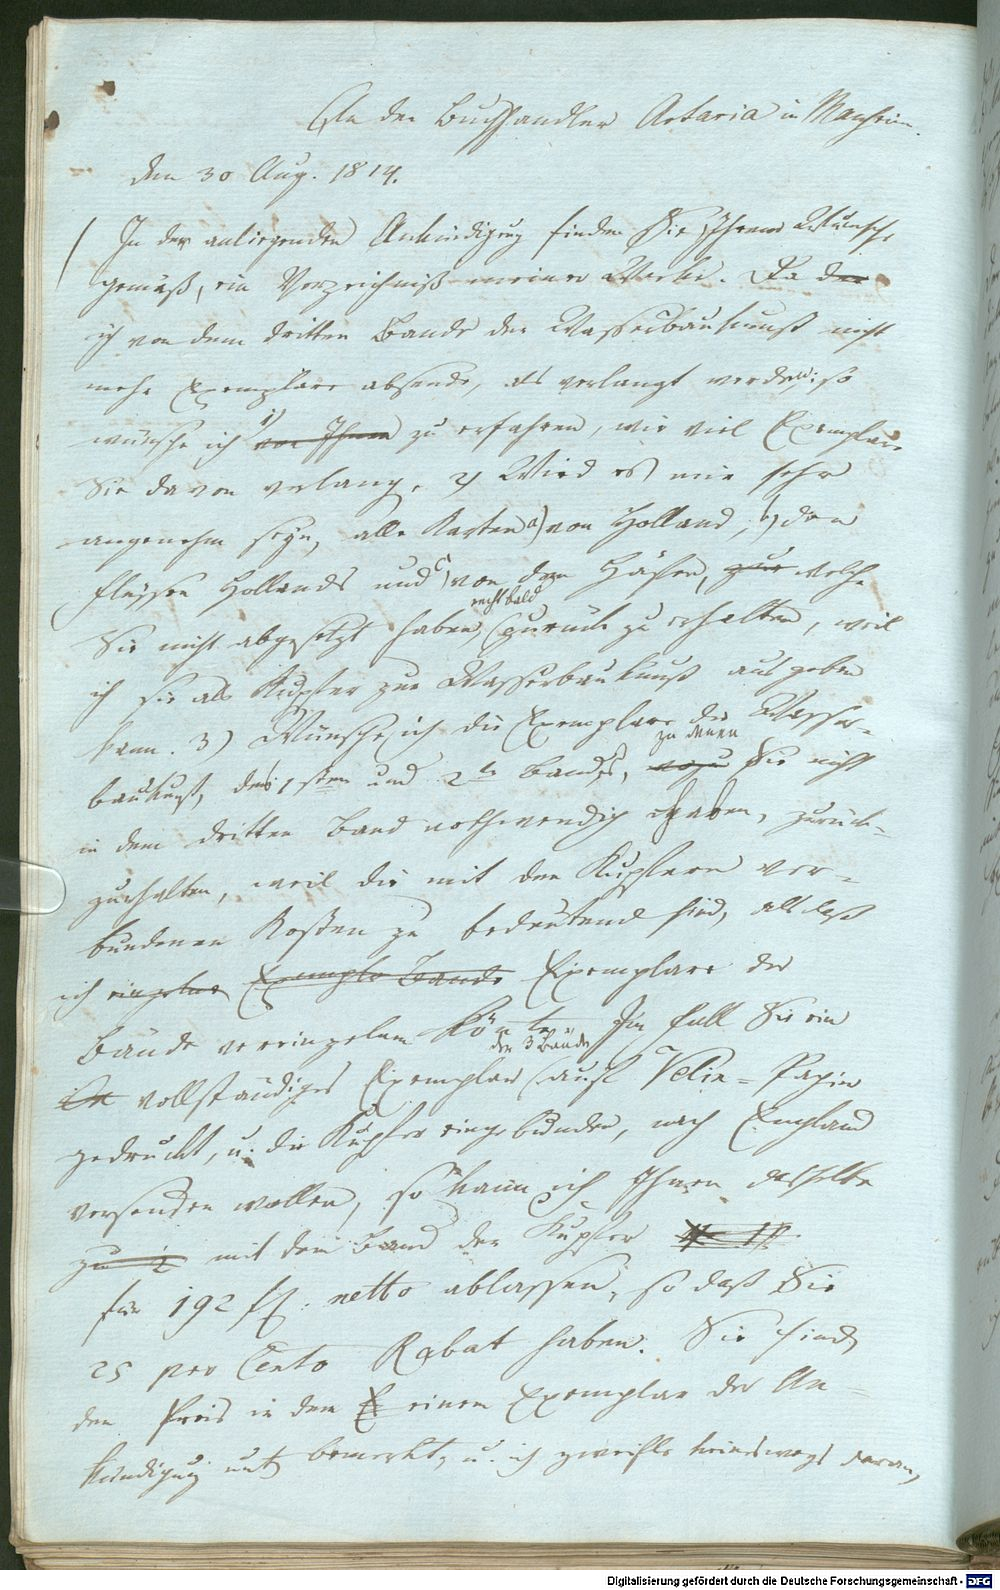 An den Buchhandler Artaria in Manheim.
den 30 Aug. 1814.
In der anliegenden Ankündigung finden Sie Ihrem Wunsche
gemäß, ein Verzeichniß meiner Werke. Da der
ich von dem dritten Bande der Wasserbaukunst nicht
mehr Exemplare absende, als verlangt werden: so
wünsche ich 1) von Ihnen zu erfahren, wie viel Exemplare
Sie davon verlang. 2) Wird es mir sehr
angenehm seyn, alle Karten a) von Holland, b) den
Flüssen Hollands und c) von den Häfen, zur welche
Sie nicht abgesetzt haben, recht bald zurück zu erhalten, weil
ich sie als Kupfer zur Wasserbaukunst ausgeben
kann. 3) Wünsche ich die Exemplare der Wasser-
baukunst, des 1sten und 2ten Bandes, zu denen Sie nicht
in dem dritten Band nothwendig haben, zurück-
zuerhalten, weil die mit den Kupfern ver-
bundenen Kosten zu bedeutend sind, als daß
ich einzelne Exemple Bande Exemplare der
Bände vereinzelnen könte. Im Fall Sie ein
vollständiges Exemplar der 3 Bände (auf Velin-Papier
gedruckt, u. die Kupfer eingebunden, nach England
versenden wollen, so kann ich Ihnen dasselbe
zu mit dem Band der Kupfer
für 192 fl. netto ablassen, so daß Sie
25 per Cento Rabat haben. Sie finden
den Preis in dem E einen Exemplar der An-
kündigung unt bemerkt, u. ich zweifle keineswegs daran,
Digitalisierung gefördert durch die Deutsche Forschungsgemeinschaft - DFG